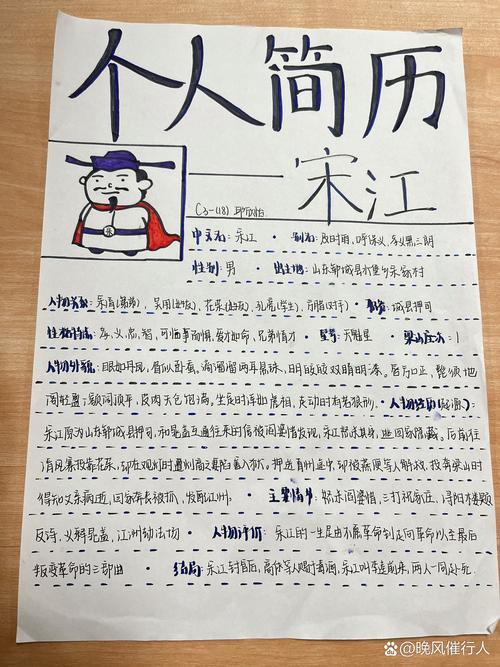 个人简历
宋江
(3-(18)
宋
中文名：宋江 · 别名：及时雨，呼保义，孝义黑三郎
性别：男 · 出生地：山东郓城县水堡乡宋家村
人物关系：宋清(弟弟)，吴用(好友)，花荣(好友)，孔亮(学生)，方腊(对手) · 职业：城县押司
性格特点：孝，义，忠，智，可临事而惧，爱才如命，兄弟情才 · 星号：天魁星 · 梁山座次：1
人物外貌：眼如丹凤，眉似卧蚕。滴溜溜两耳悬珠，明皎皎双睛明漆。唇方口正，髭须地
阁轻盈；额阔顶平，皮肉天仓饱满。坐定时浑如虎相，走动时有若狼形。· 人物经历(起源)：
宋江原为山东郓城县押司，和晁盖互通往来的信被阎婆惜发现，宋江怒杀其身，逃回家隐藏。后前往
清风寨投靠花荣，却在观灯时遭刘高之妻陷害入狱。押送青州途中，却被燕顺等人解救，投奔梁山时
得知父亲病逝，回家奔丧被抓，发配江州。 · 主要情节：怒杀阎婆惜，三打祝家庄，浔阳楼题
反诗，义释晁盖，江州劫法场 · 人物评价：宋江的一生是由不愿革命到走向革命以至最后
叛变革命的三部曲 · 结局：宋江封官后，高俅等人赐时毒酒，宋江叫李逵前来，两人一同赴死。
百家号/晚风催行人